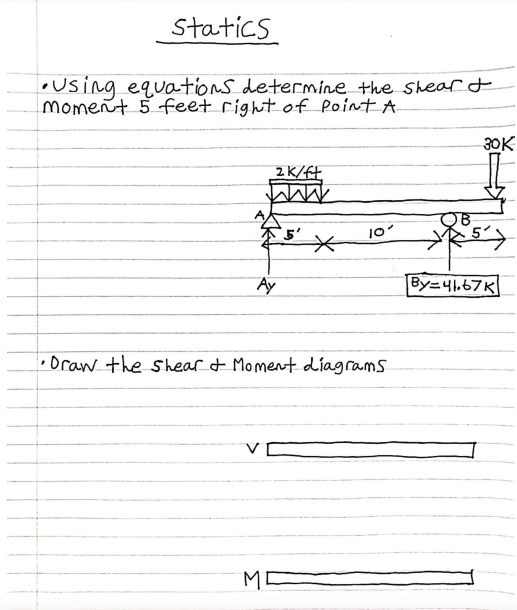 Statics
• Using equations determine the shear &
moment 5 feet right of Point A
30K
2K/ft
A
B
5'
10'
5'
Ay
By=41.67K
• Draw the shear & Moment diagrams
V
M